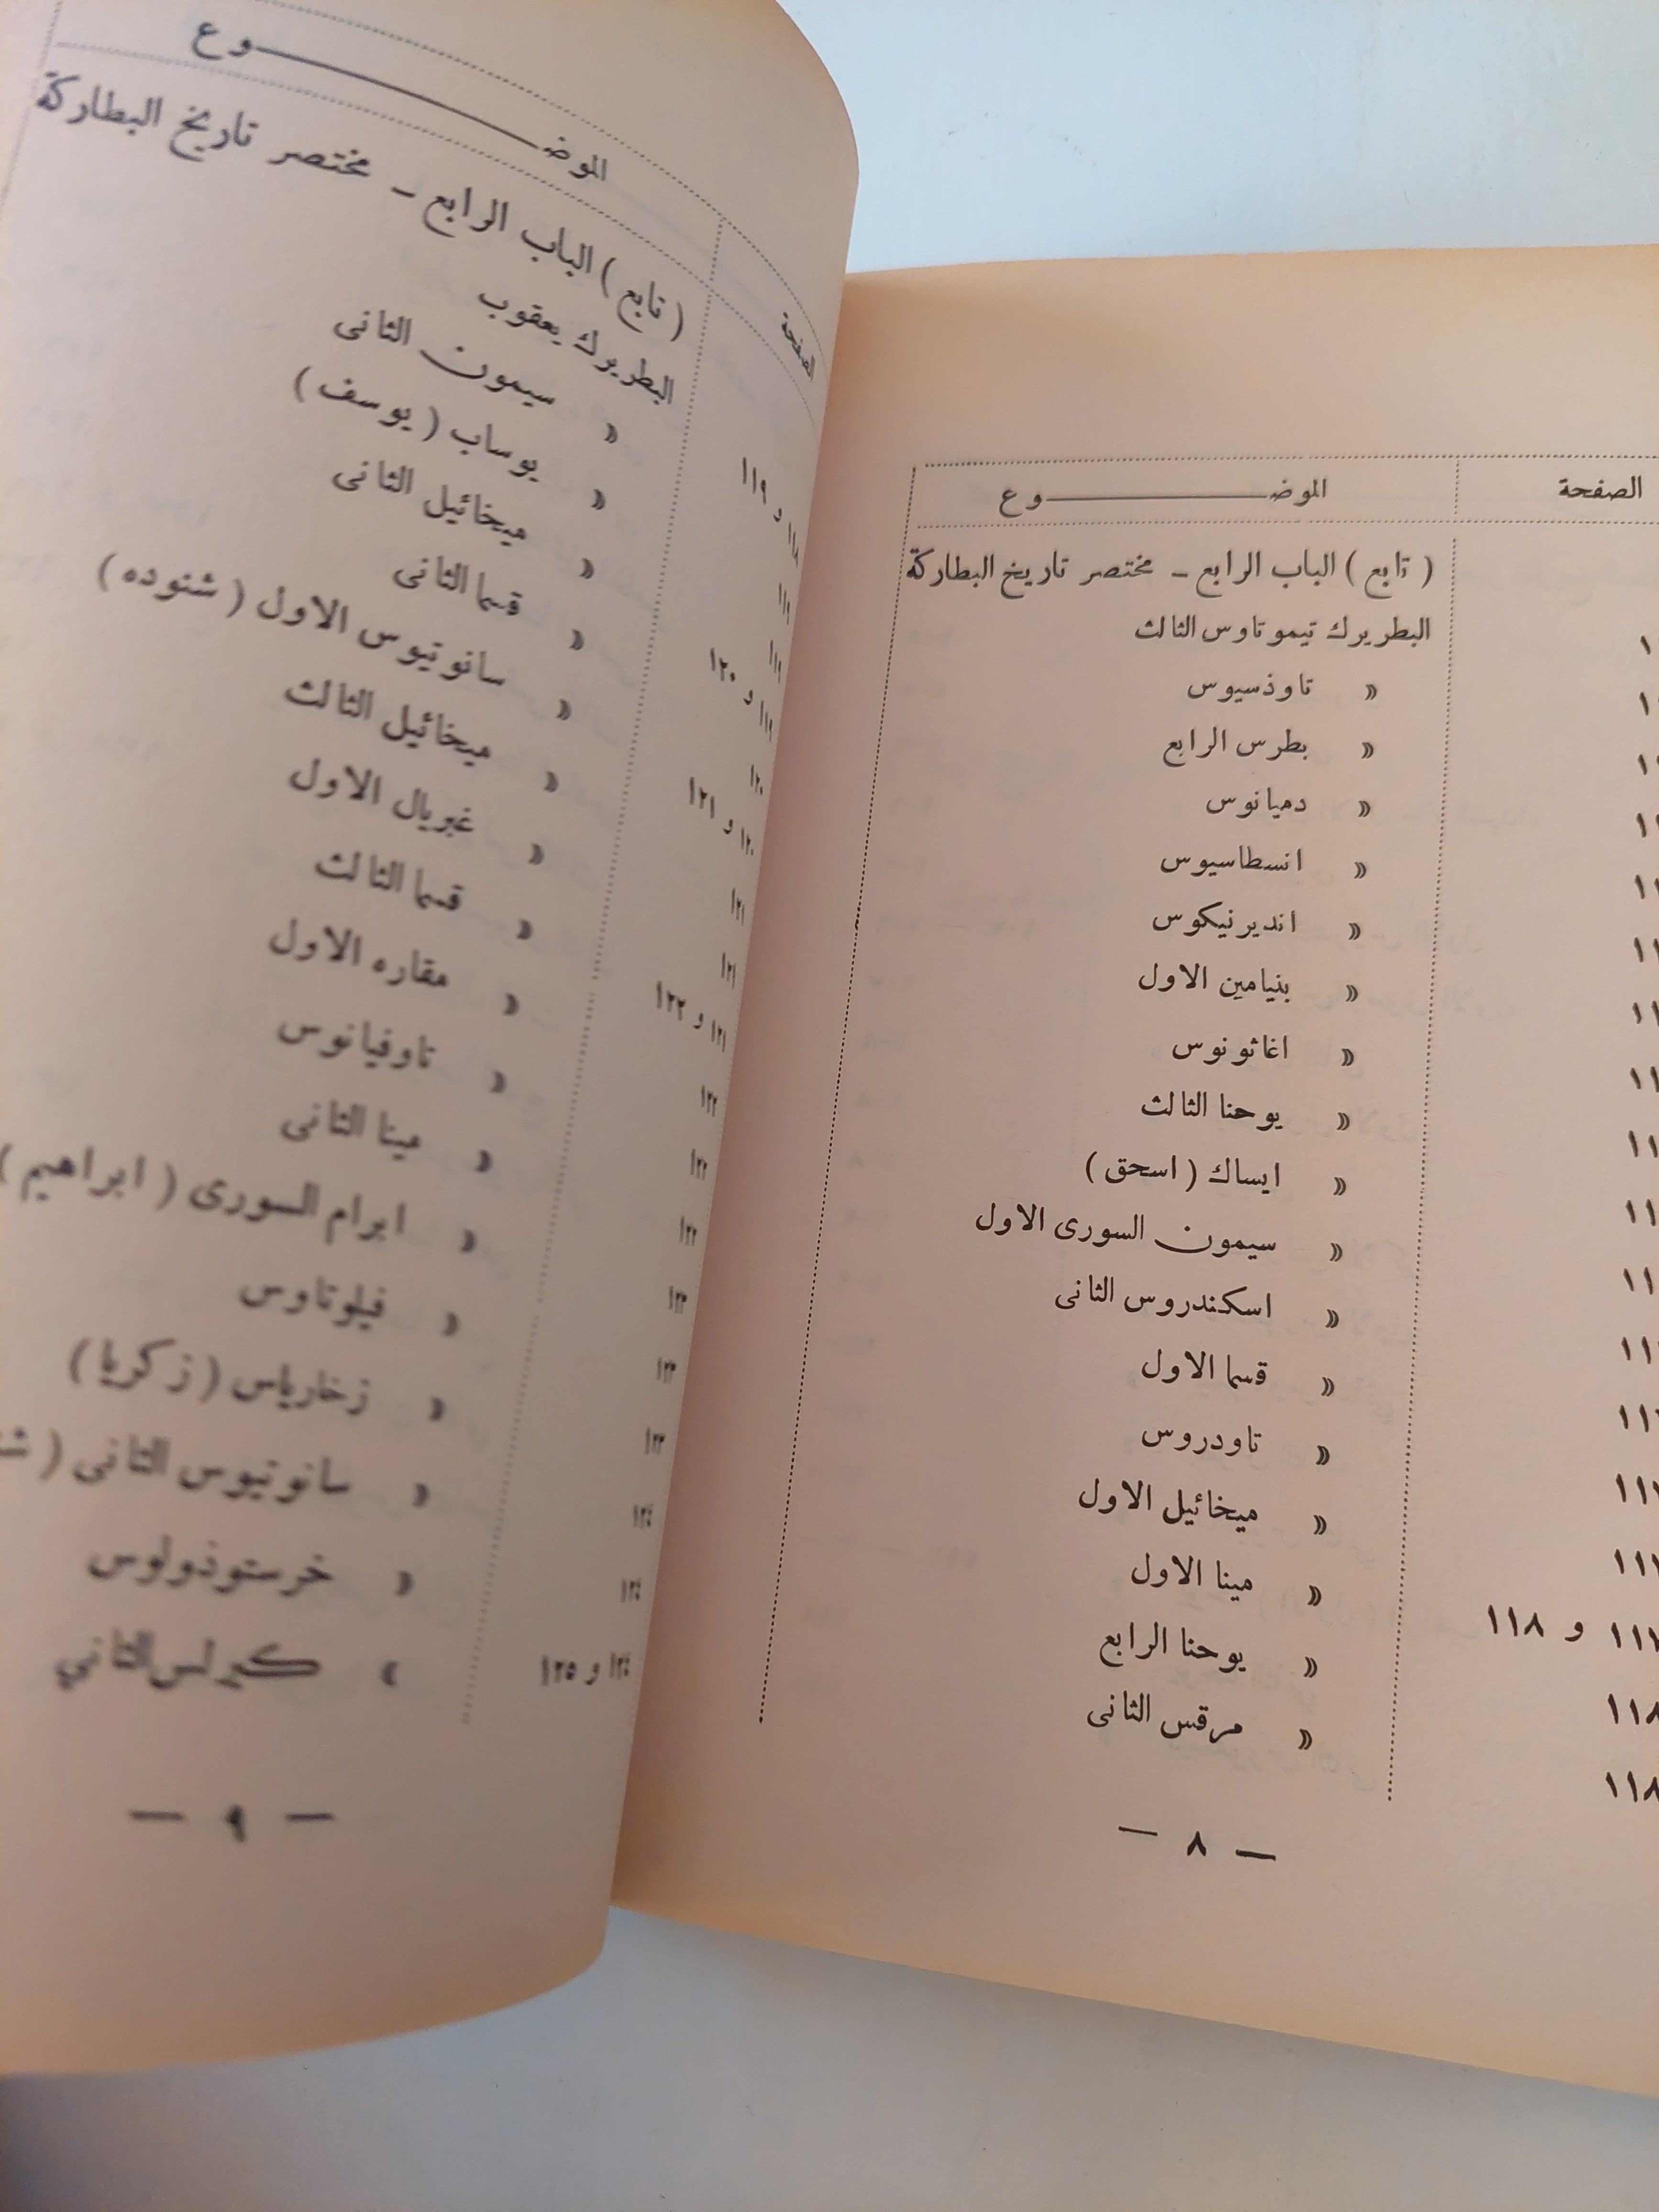 الصفحة الموضوع
( تابع ) الباب الرابع – مختصر تاريخ البطاركة
البطريرك تيموتاوس الثالث
» تاوذسيوس
» بطرس الرابع
» دميانوس
» انسطاسيوس
» انديرنيكوس
» بنيامين الاول
» اغاثونوس
» يوحنا الثالث
» ايساك ( اسحق )
» سيمون السورى الاول
» اسكندروس الثانى
» قسما الاول
» تاودروس
» ميخائيل الاول
» مينا الاول
و ١١٨ » يوحنا الرابع
» مرقس الثانى
— ٨ —
الصفحة الموضوع
( تابع ) الباب الرابع – مختصر تاريخ البطاركة
١١٨ و ١١٩ البطريرك يعقوب
١١٩ » سيمون الثانى
١١٩ » يوساب ( يوسف )
١١٩ و ١٢٠ » ميخائيل الثانى
١٢٠ » قسما الثانى
١٢٠ و ١٢١ » سانوتيوس الاول ( شنوده )
١٢١ » ميخائيل الثالث
١٢١ » غبريال الاول
١٢١ و ١٢٢ » قسما الثالث
١٢٢ » مقاره الاول
١٢٢ » تاوفيانوس
١٢٢ » مينا الثانى
١٢٣ » ابرام السورى ( ابراهيم )
١٢٣ » فيلوتاوس
١٢٣ » زخارياس ( زكريا )
١٢٤ » سانوتيوس الثانى (
١٢٤ » خرستوذولوس
١٢٤ و ١٢٥ » كيرلس الثاني
— ٩ —